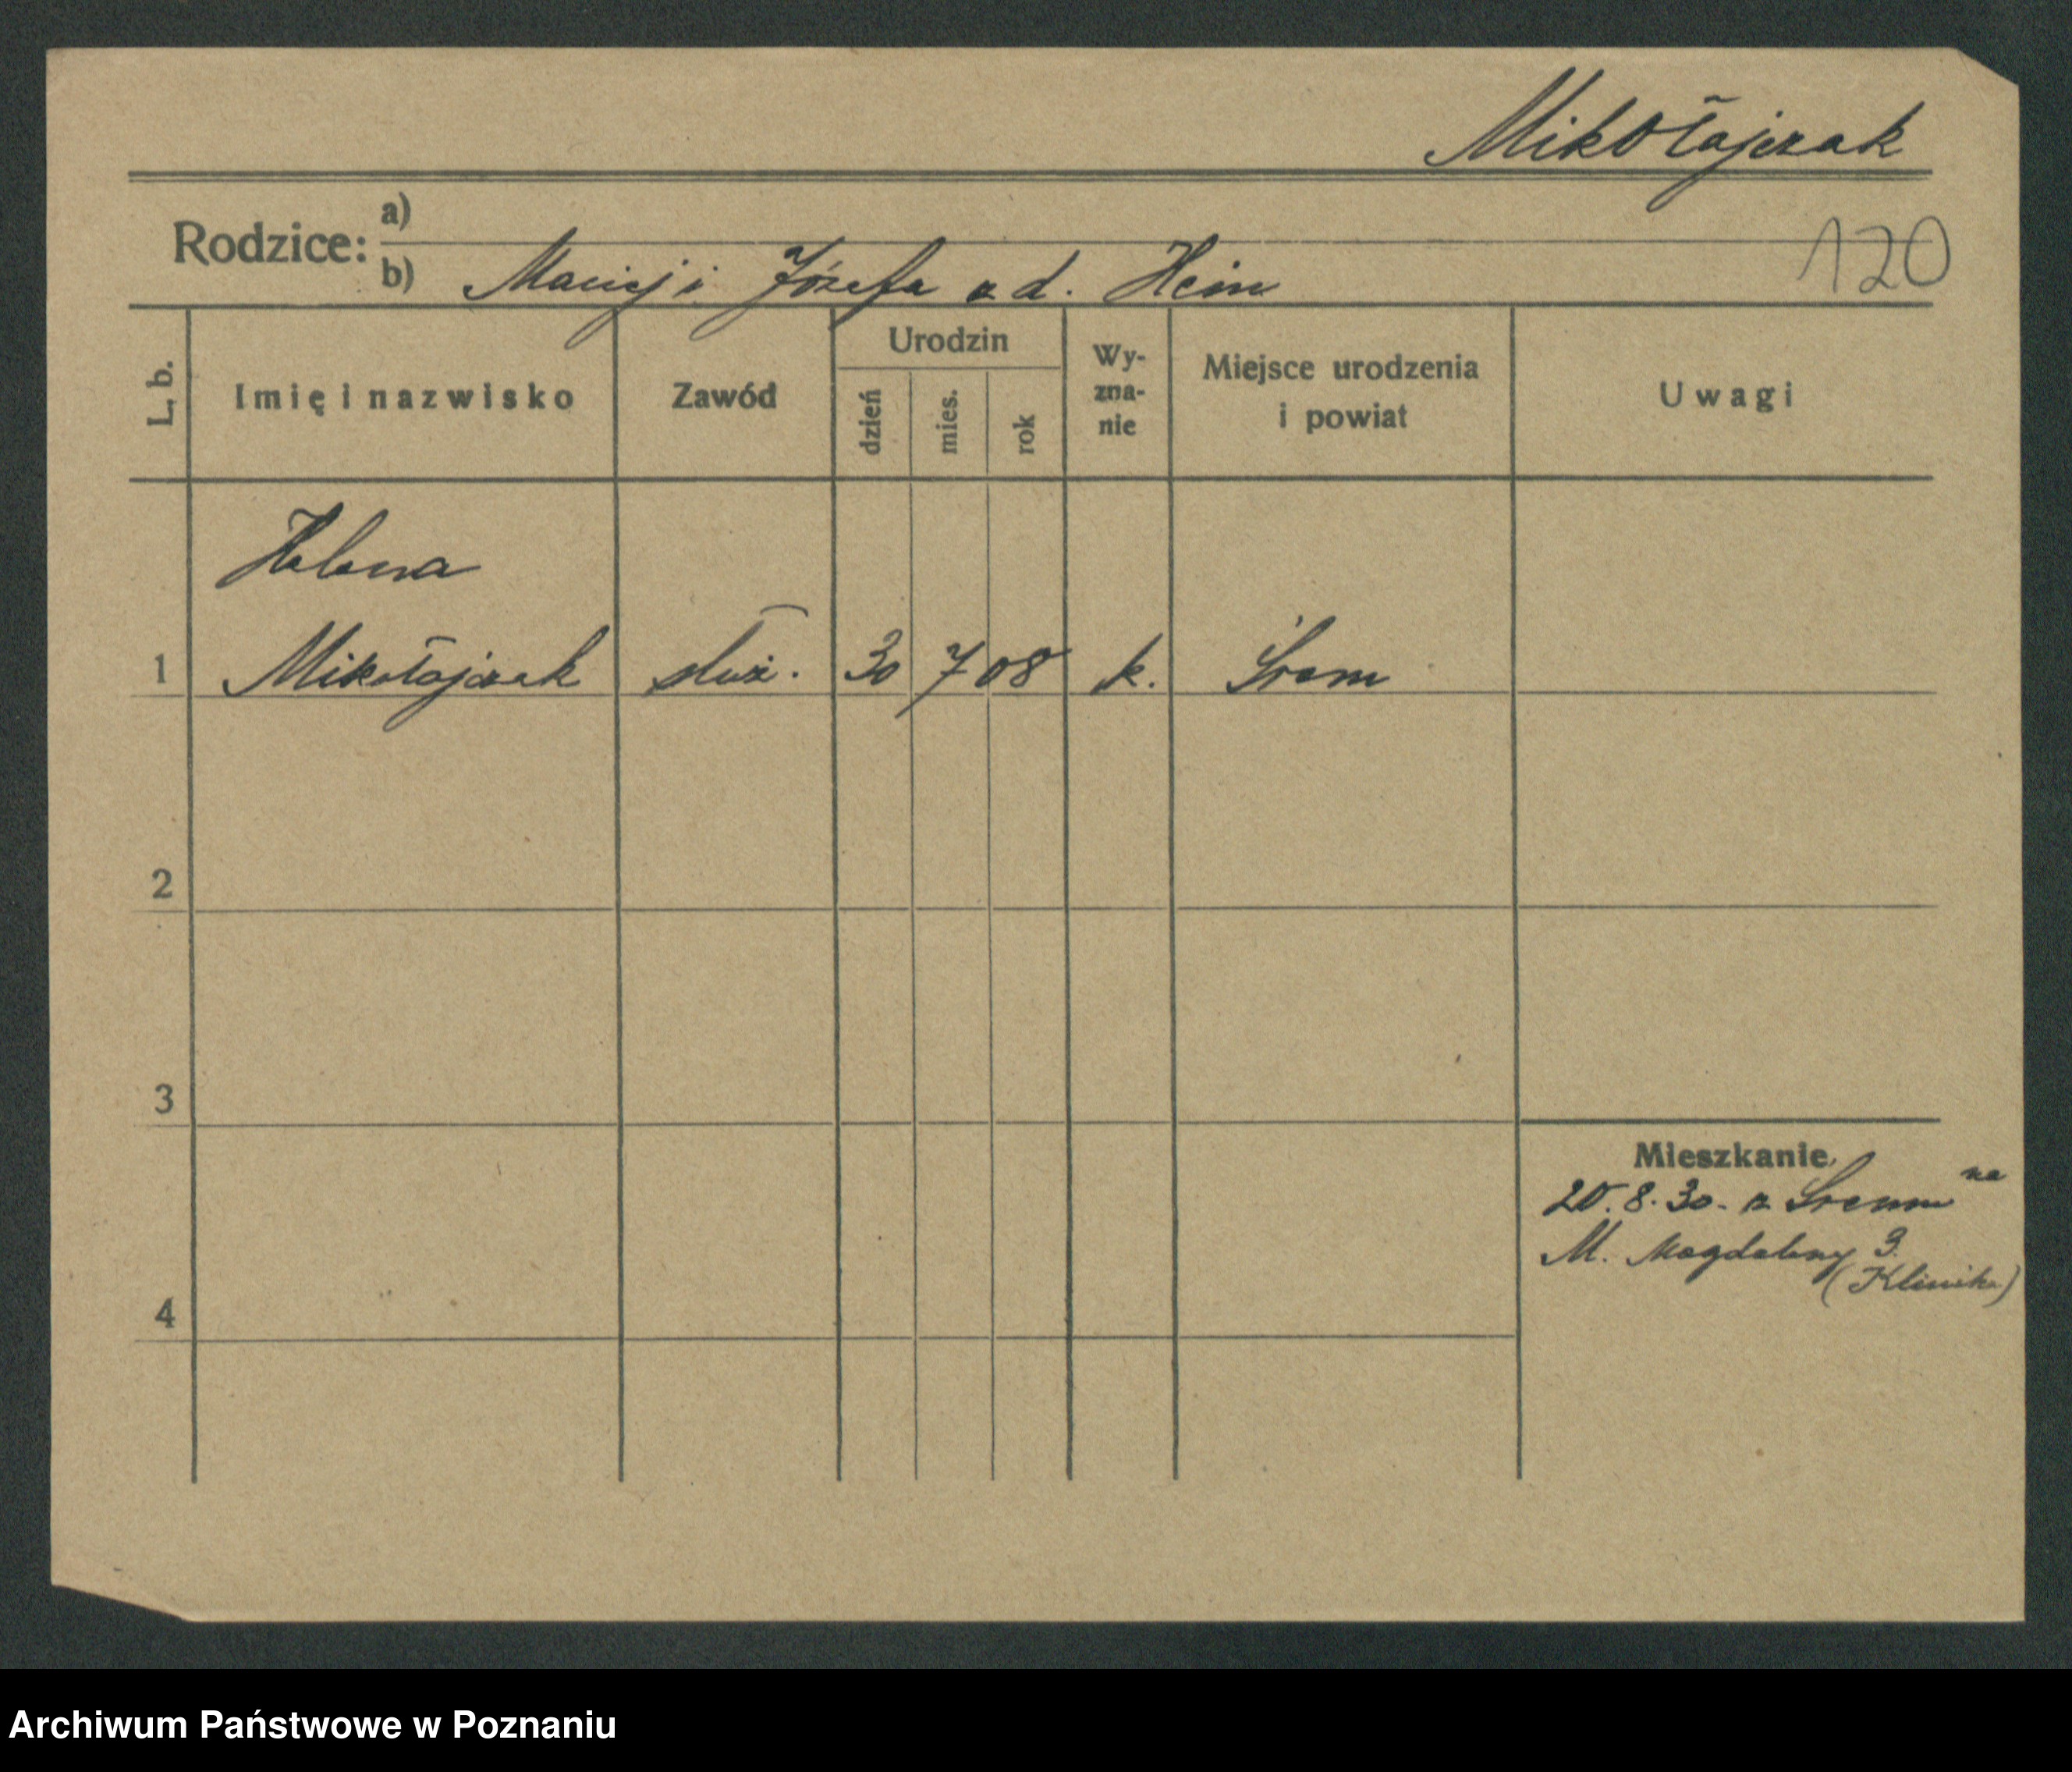 Mikołajczak
Rodzice:
a)
b) Maciej i Józefa z d. Hein
120
L. b.
Imię i nazwisko
Zawód
Urodzin
dzień
mies.
rok
Wy-
zna-
nie
Miejsce urodzenia
i powiat
Uwagi
Helena
1 Mikołajczak służ. 30 7 08 k. Śrem
2
3
4
Mieszkanie
20.8.30. z Śremu na
M. Magdaleny 3.
(Klinika)
Archiwum Państwowe w Poznaniu